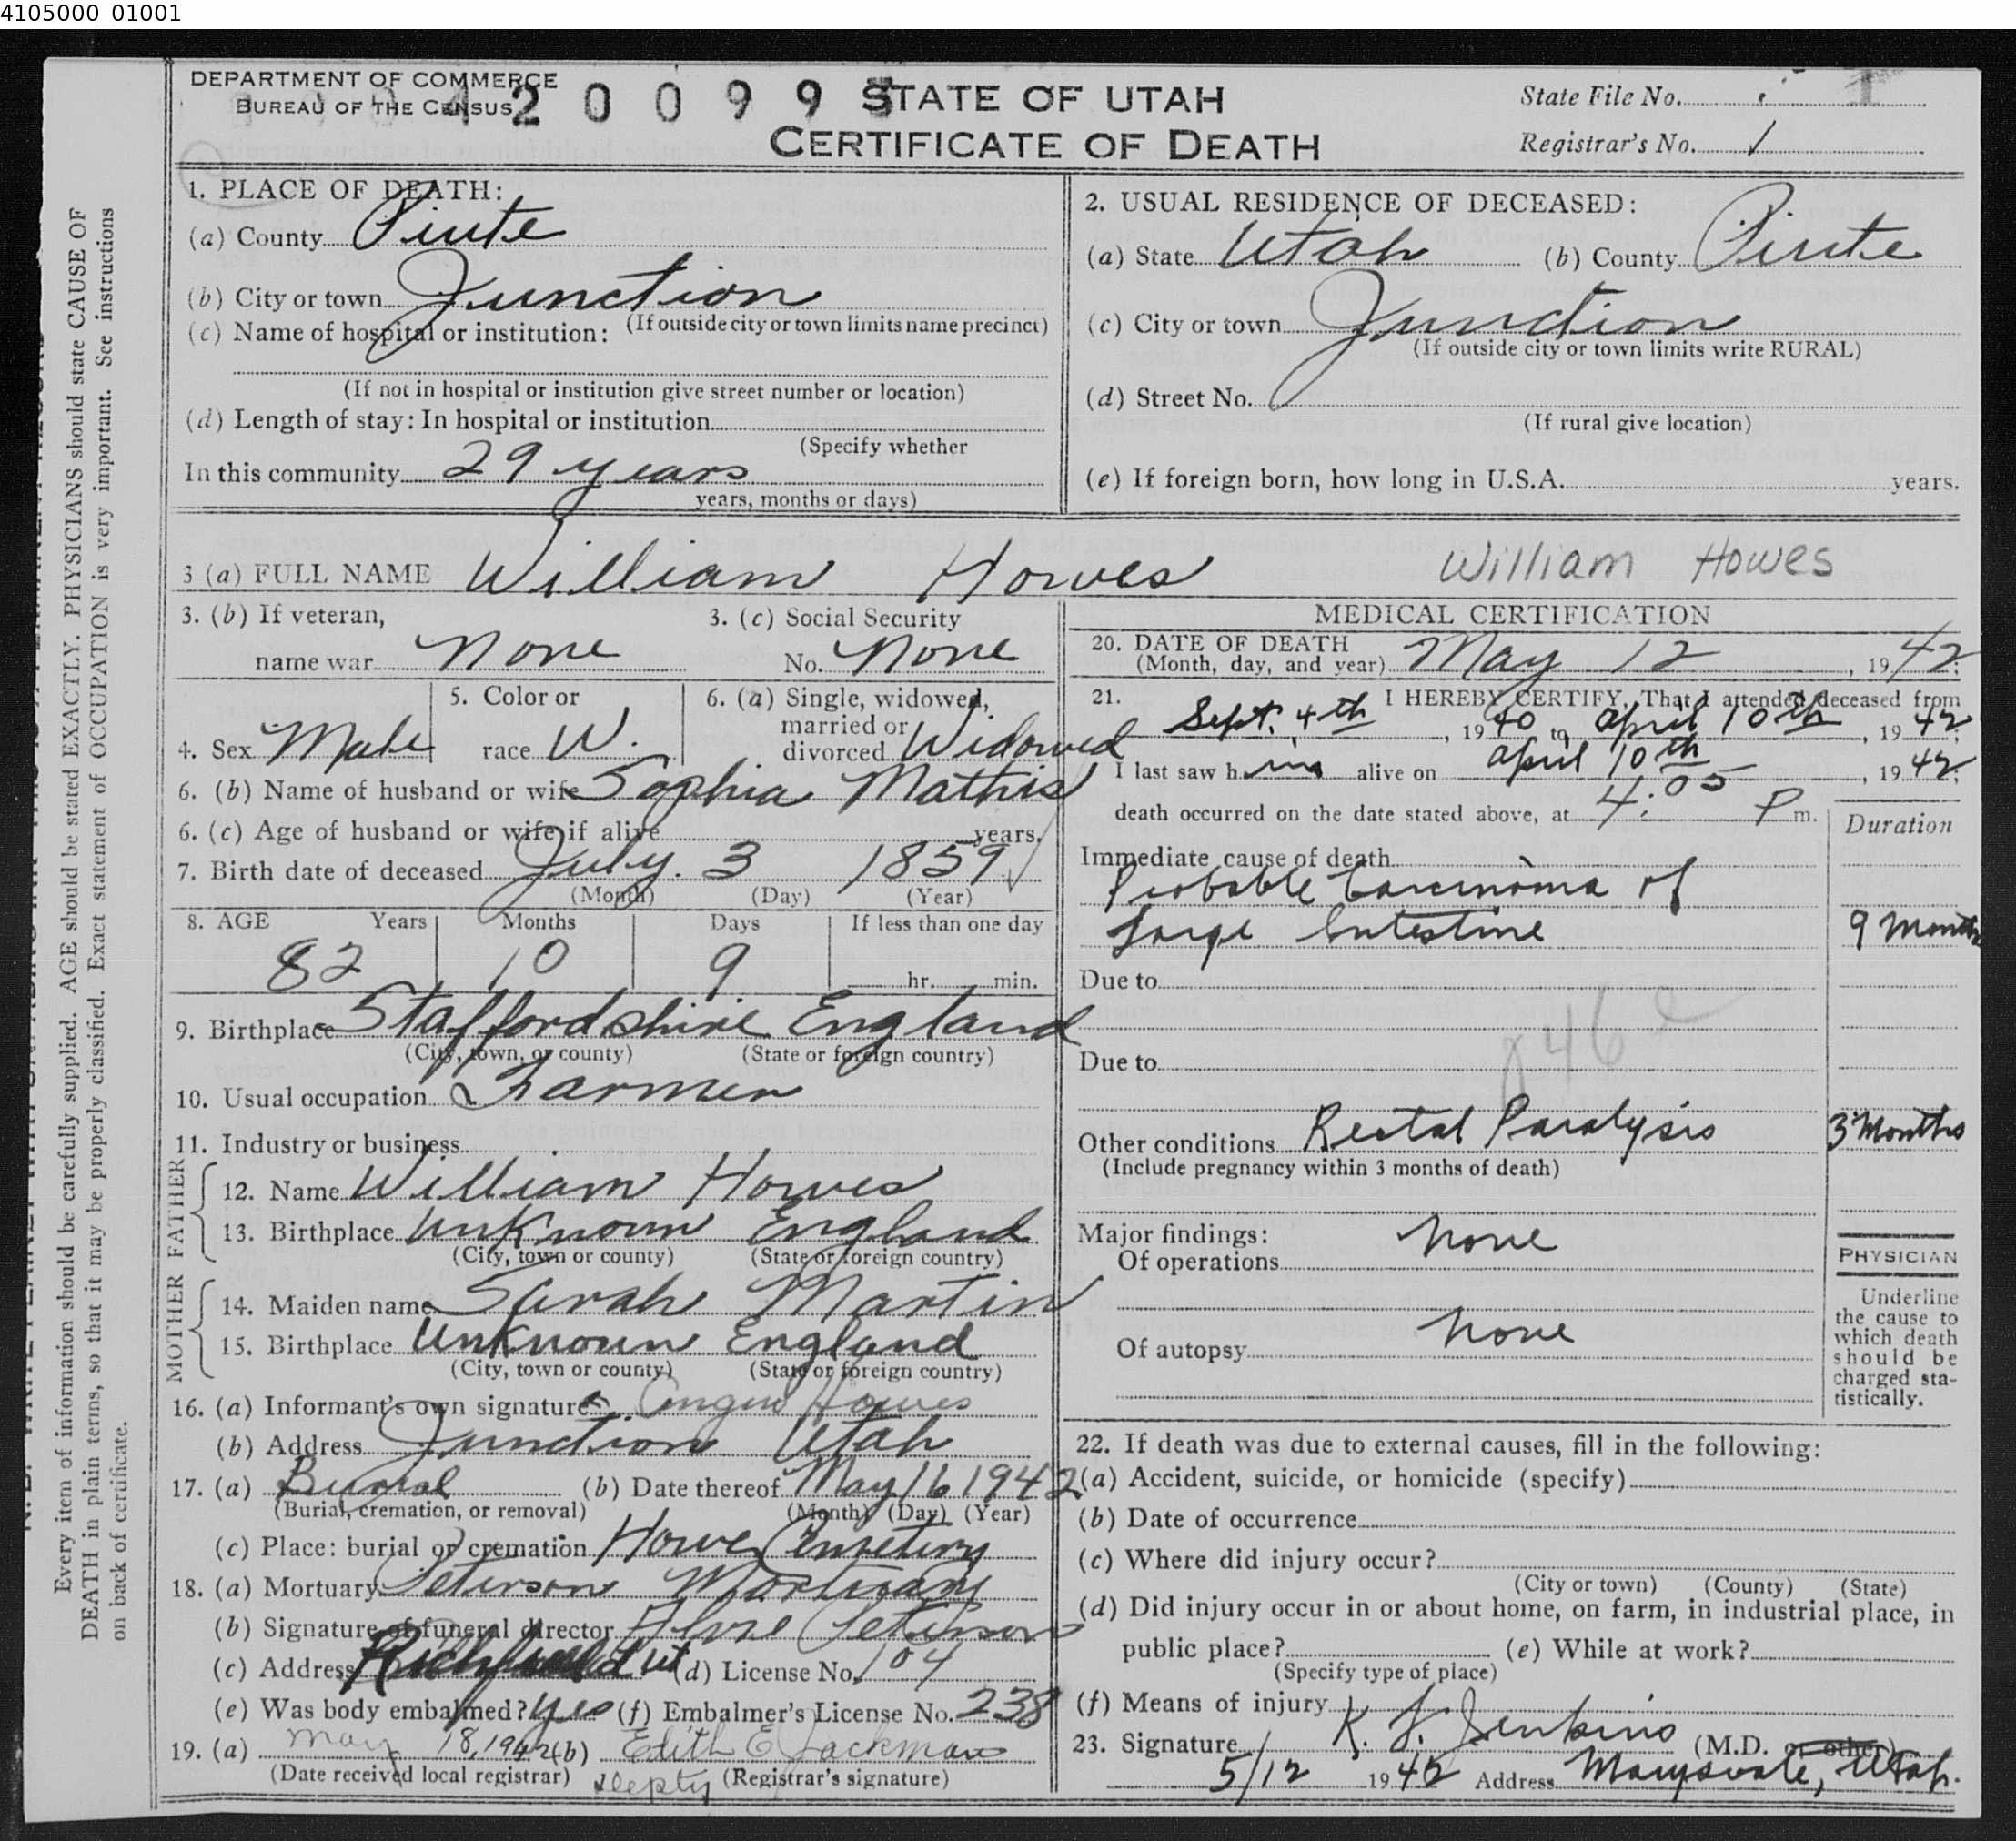 4105000_01001
DEPARTMENT OF COMMERCE
BUREAU OF THE CENSUS
4 2 0 0 9 9 5
STATE OF UTAH
CERTIFICATE OF DEATH
State File No. 1
Registrar's No. 1
1. PLACE OF DEATH:
(a) County Piute
(b) City or town Junction
(If outside city or town limits name precinct)
(c) Name of hospital or institution:
(If not in hospital or institution give street number or location)
(d) Length of stay: In hospital or institution
(Specify whether
In this community 29 years
years, months or days)
2. USUAL RESIDENCE OF DECEASED:
(a) State Utah (b) County Piute
(c) City or town Junction
(If outside city or town limits write RURAL)
(d) Street No.
(If rural give location)
(e) If foreign born, how long in U.S.A. years.
3 (a) FULL NAME William Howes William Howes
3. (b) If veteran,
name war None
3. (c) Social Security
No. None
4. Sex Male
5. Color or
race W.
6. (a) Single, widowed,
married or
divorced Widowed
6. (b) Name of husband or wife Sophia Mathis
6. (c) Age of husband or wife if alive years.
7. Birth date of deceased July. 3 1859
(Month) (Day) (Year)
8. AGE Years Months Days If less than one day
82 10 9 hr. min.
9. Birthplace Staffordshire England
(City, town, or county) (State or foreign country)
10. Usual occupation Farmer
11. Industry or business
FATHER
12. Name William Howes
13. Birthplace Unknown England
(City, town or county) (State or foreign country)
MOTHER
14. Maiden name Sarah Martin
15. Birthplace Unknown England
(City, town or county) (State or foreign country)
16. (a) Informant's own signature Howes
(b) Address Junction Utah
17. (a) Burial (b) Date thereof May 16 1942
(Burial, cremation, or removal) (Month) (Day) (Year)
(c) Place: burial or cremation Howes Cemetery
18. (a) Mortuary Peterson Mortuary
(b) Signature of funeral director Peterson
(c) Address Richfield Ut (d) License No. 104
(e) Was body embalmed? Yes (f) Embalmer's License No. 238
19. (a) May 18, 1942 (b) Edith E Jackman
(Date received local registrar) Depty (Registrar's signature)
MEDICAL CERTIFICATION
20. DATE OF DEATH
(Month, day, and year) May 12, 1942
21. I HEREBY CERTIFY, That I attended deceased from
Sept. 4th, 1940 to April 10th, 1942;
I last saw him alive on April 10th, 1942;
death occurred on the date stated above, at 4:05 P m.
Duration
Immediate cause of death
Probable Carcinoma of
Large Intestine 9 Months
Due to
46
Due to
Other conditions Rectal Paralysis 3 Months
(Include pregnancy within 3 months of death)
Major findings:
Of operations None
Of autopsy None
PHYSICIAN
Underline
the cause to
which death
should be
charged sta-
tistically.
22. If death was due to external causes, fill in the following:
(a) Accident, suicide, or homicide (specify)
(b) Date of occurrence
(c) Where did injury occur?
(City or town) (County) (State)
(d) Did injury occur in or about home, on farm, in industrial place, in
public place? (e) While at work?
(Specify type of place)
(f) Means of injury
23. Signature K. F. Jenkins (M.D. or other)
5/12 1942 Address Marysvale, Utah.
Every item of information should be carefully supplied. AGE should be stated EXACTLY. PHYSICIANS should state CAUSE OF
DEATH in plain terms, so that it may be properly classified. Exact statement of OCCUPATION is very important. See instructions
on back of certificate.